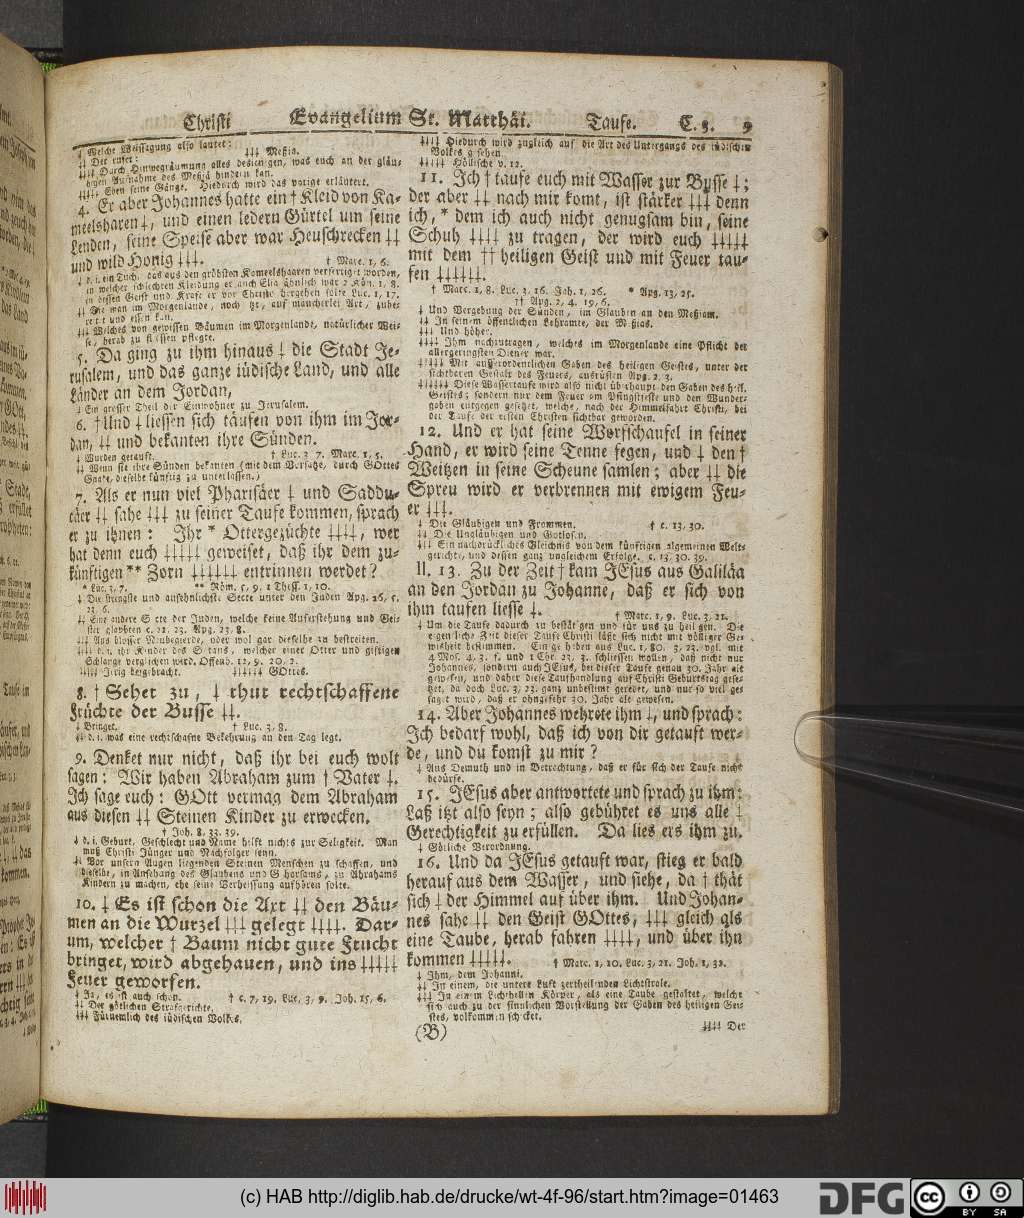 Christi Evangelium St. Matthäi. Taufe. C. 3. 9
‡ Welche Weissagung also lautet: ‡‡‡ Meßia.
‡‡ Der rufet:
‡‡‡‡ Durch Hinwegräumung alles desienigen, was euch an der gläu-
bigen Aufnahme des Meßiä hindern kan.
‡‡‡‡‡ Eben seine Gänge. Hiedurch wird das vorige erläutert.
4. Er aber Johannes hatte ein † Kleid von Ka-
meelsharen ‡, und einen ledern Gürtel um seine
Lenden, seine Speise aber war Heuschrecken ‡‡
und wild Honig ‡‡‡. † Marc. 1, 6.
‡ d. i. ein Tuch, das aus den gröbsten Kameelshaaren verfertiget worden,
in welcher schlechten Kleidung er auch Elia ähnlich war 2 Kön. 1, 8.
in dessen Geist und Kraft er vor Christo hergehen solte Luc. 1, 17.
‡‡ Die man im Morgenlande, noch itzt, auf mancherlei Art, zube-
reitet und essen kan.
‡‡‡ Welches von gewissen Bäumen im Morgenlande, natürlicher Wei-
se, herab zu fliessen pflegte.
5. Da ging zu ihm hinaus ‡ die Stadt Je-
rusalem, und das ganze iüdische Land, und alle
Länder an dem Jordan,
‡ Ein grosser Theil der Einwohner zu Jerusalem.
6. † Und ‡ liessen sich täufen von ihm im Jor-
dan, ‡‡ und bekanten ihre Sünden.
‡ Wurden getauft. † Luc. 3 7. Marc. 1, 5.
‡‡ Wenn sie ihre Sünden bekanten (mit dem Vorsatze, durch GOttes
Gnade, dieselbe künftig zu unterlassen.)
7. Als er nun viel Pharisäer ‡ und Saddu-
cäer ‡‡ sahe ‡‡‡ zu seiner Taufe kommen, sprach
er zu ihnen: Ihr * Ottergezüchte ‡‡‡‡, wer
hat denn euch ‡‡‡‡‡ geweiset, daß ihr dem zu-
künftigen ** Zorn ‡‡‡‡‡‡ entrinnen werdet?
* Luc. 3, 7. ** Röm. 5, 9. 1 Thess. 1, 10.
‡ Die strengste und ansehnlichste Secte unter den Juden Apg. 26, 5.
23, 6.
‡‡ Eine andere Secte der Juden, welche keine Auferstehung und Gei-
ster glaubten c. 22, 23. Apg. 23, 8.
‡‡‡ Aus blosser Neubegierde, oder wol gar dieselbe zu bestreiten.
‡‡‡‡ d. i. ihr Kinder des Satans, welcher einer Otter und giftigen
Schlange verglichen wird. Offenb. 12, 9. 20, 2.
‡‡‡‡‡ Irrig beigebracht. ‡‡‡‡‡‡ GOttes.
8. † Sehet zu, ‡ thut rechtschaffene
Früchte der Busse ‡‡.
‡ Bringet. † Luc. 3, 8.
‡‡ d. i. was eine rechtschafne Bekehrung an den Tag legt.
9. Denket nur nicht, daß ihr bei euch wolt
sagen: Wir haben Abraham zum † Vater ‡.
Ich sage euch: GOtt vermag dem Abraham
aus diesen ‡‡ Steinen Kinder zu erwecken.
† Joh. 8, 33. 39.
‡ d. i. Geburt, Geschlecht und Name hilft nichts zur Seligkeit. Man
muß Christi Jünger und Nachfolger seyn.
‡‡ Vor unsern Augen liegenden Steinen Menschen zu schaffen, und
dieselbe, in Ansehung des Glaubens und Gehorsams, zu Abrahams
Kindern zu machen, ehe seine Verheissung aufhören solte.
10. ‡ Es ist schon die Axt ‡‡ den Bäu-
men an die Wurzel ‡‡‡ gelegt ‡‡‡‡. Dar-
um, welcher † Baum nicht gute Frucht
bringet, wird abgehauen, und ins ‡‡‡‡‡
Feuer geworfen.
‡ Ja, es ist auch schon. † c. 7, 19. Luc. 3, 9. Joh. 15, 6.
‡‡ Der götlichen Strafgerichte.
‡‡‡ Fürnemlich des iüdischen Volkes.
‡‡‡‡ Hiedurch wird zugleich auf die Art des Untergangs des iüdischen
Volkes gesehen.
‡‡‡‡‡ Höllische v. 12.
11. Ich † taufe euch mit Wasser zur Busse ‡;
der aber ‡‡ nach mir komt, ist stärker ‡‡‡ denn
ich, * dem ich auch nicht genugsam bin, seine
Schuh ‡‡‡‡ zu tragen, der wird euch ‡‡‡‡‡
mit dem †† heiligen Geist und mit Feuer tau-
fen ‡‡‡‡‡‡.
† Marc. 1, 8. Luc. 3, 16. Joh. 1, 26. * Apg. 13, 25.
†† Apg. 2, 4. 19, 6.
‡ Und Vergebung der Sünden, im Glauben an den Meßiam.
‡‡ In seinem öffentlichen Lehramte, der Meßias.
‡‡‡ Und höher.
‡‡‡‡ Ihm nachzutragen, welches im Morgenlande eine Pflicht der
allergeringsten Diener war.
‡‡‡‡‡ Mit ausserordentlichen Gaben des heiligen Geistes, unter der
sichtbaren Gestalt des Feuers, ausrüsten Apg. 2, 3.
‡‡‡‡‡‡ Diese Wassertaufe wird also nicht überhaupt den Gaben des heil.
Geistes; sondern nur dem Feuer am Pfingstfeste und den Wunder-
gaben entgegen gesetzet, welche, nach der Himmelfahrt Christi, bei
der Taufe der ersten Christen sichtbar geworden.
12. Und er hat seine Worfschaufel in seiner
Hand, er wird seine Tenne fegen, und ‡ den †
Weitzen in seine Scheune samlen; aber ‡‡ die
Spreu wird er verbrennen mit ewigem Feu-
er ‡‡‡.
‡ Die Gläubigen und Frommen. † c. 13. 30.
‡‡ Die Ungläubigen und Gotlosen.
‡‡‡ Ein nachdrückliches Gleichnis von dem künftigen algemeinen Welt-
gerichte, und dessen ganz ungleichem Erfolge. c. 13, 30. 39.
II. 13. Zu der Zeit † kam JEsus aus Galiläa
an den Jordan zu Johanne, daß er sich von
ihm taufen liesse ‡. † Marc. 1, 9. Luc. 3, 21.
‡ Um die Taufe dadurch zu bestätigen und für uns zu heiligen. Die
eigentliche Zeit dieser Taufe Christi läßt sich nicht mit völliger Ge-
wisheit bestimmen. Einige haben aus Luc. 1, 80. 3, 23. vgl. mit
4 Mos. 4, 3. f. und 1 Chr. 23, 3. schliessen wollen, daß nicht nur
Johannes, sondern auch JEsus, bei dieser Taufe genau 30. Jahr alt
gewesen, und daher diese Taufhandlung auf Christi Geburtstag gese-
tzet, da doch Luc. 3, 23. ganz unbestimt geredet, und nur so viel ge-
saget wird, daß er ohngefehr 30. Jahr alt gewesen.
14. Aber Johannes wehrete ihm ‡, und sprach:
Ich bedarf wohl, daß ich von dir getauft wer-
de, und du komst zu mir?
‡ Aus Demuth und in Betrachtung, daß er für sich der Taufe nicht
bedürfe.
15. JEsus aber antwortete und sprach zu ihm:
Laß itzt also seyn; also gebühret es uns alle ‡
Gerechtigkeit zu erfüllen. Da lies ers ihm zu.
‡ Götliche Verordnung.
16. Und da JEsus getauft war, stieg er bald
herauf aus dem Wasser, und siehe, da † thät
sich ‡ der Himmel auf über ihm. Und Johan-
nes sahe ‡‡ den Geist GOttes, ‡‡‡ gleich als
eine Taube, herab fahren ‡‡‡‡, und über ihn
kommen ‡‡‡‡‡. † Marc. 1, 10. Luc. 3, 21. Joh. 1, 32.
‡ Ihm, dem Johanni.
‡‡ In einem, die untere Luft zertheilenden Lichtstrale.
‡‡‡ In einem Lichthellen Körper, als eine Taube gestaltet, welche
sich auch zu der sinnlichen Vorstellung der Gaben des heiligen Gei-
stes, volkommen schicket.
(B) ‡‡‡‡ Der
(c) HAB http://diglib.hab.de/drucke/wt-4f-96/start.htm?image=01463
DFG cc BY SA